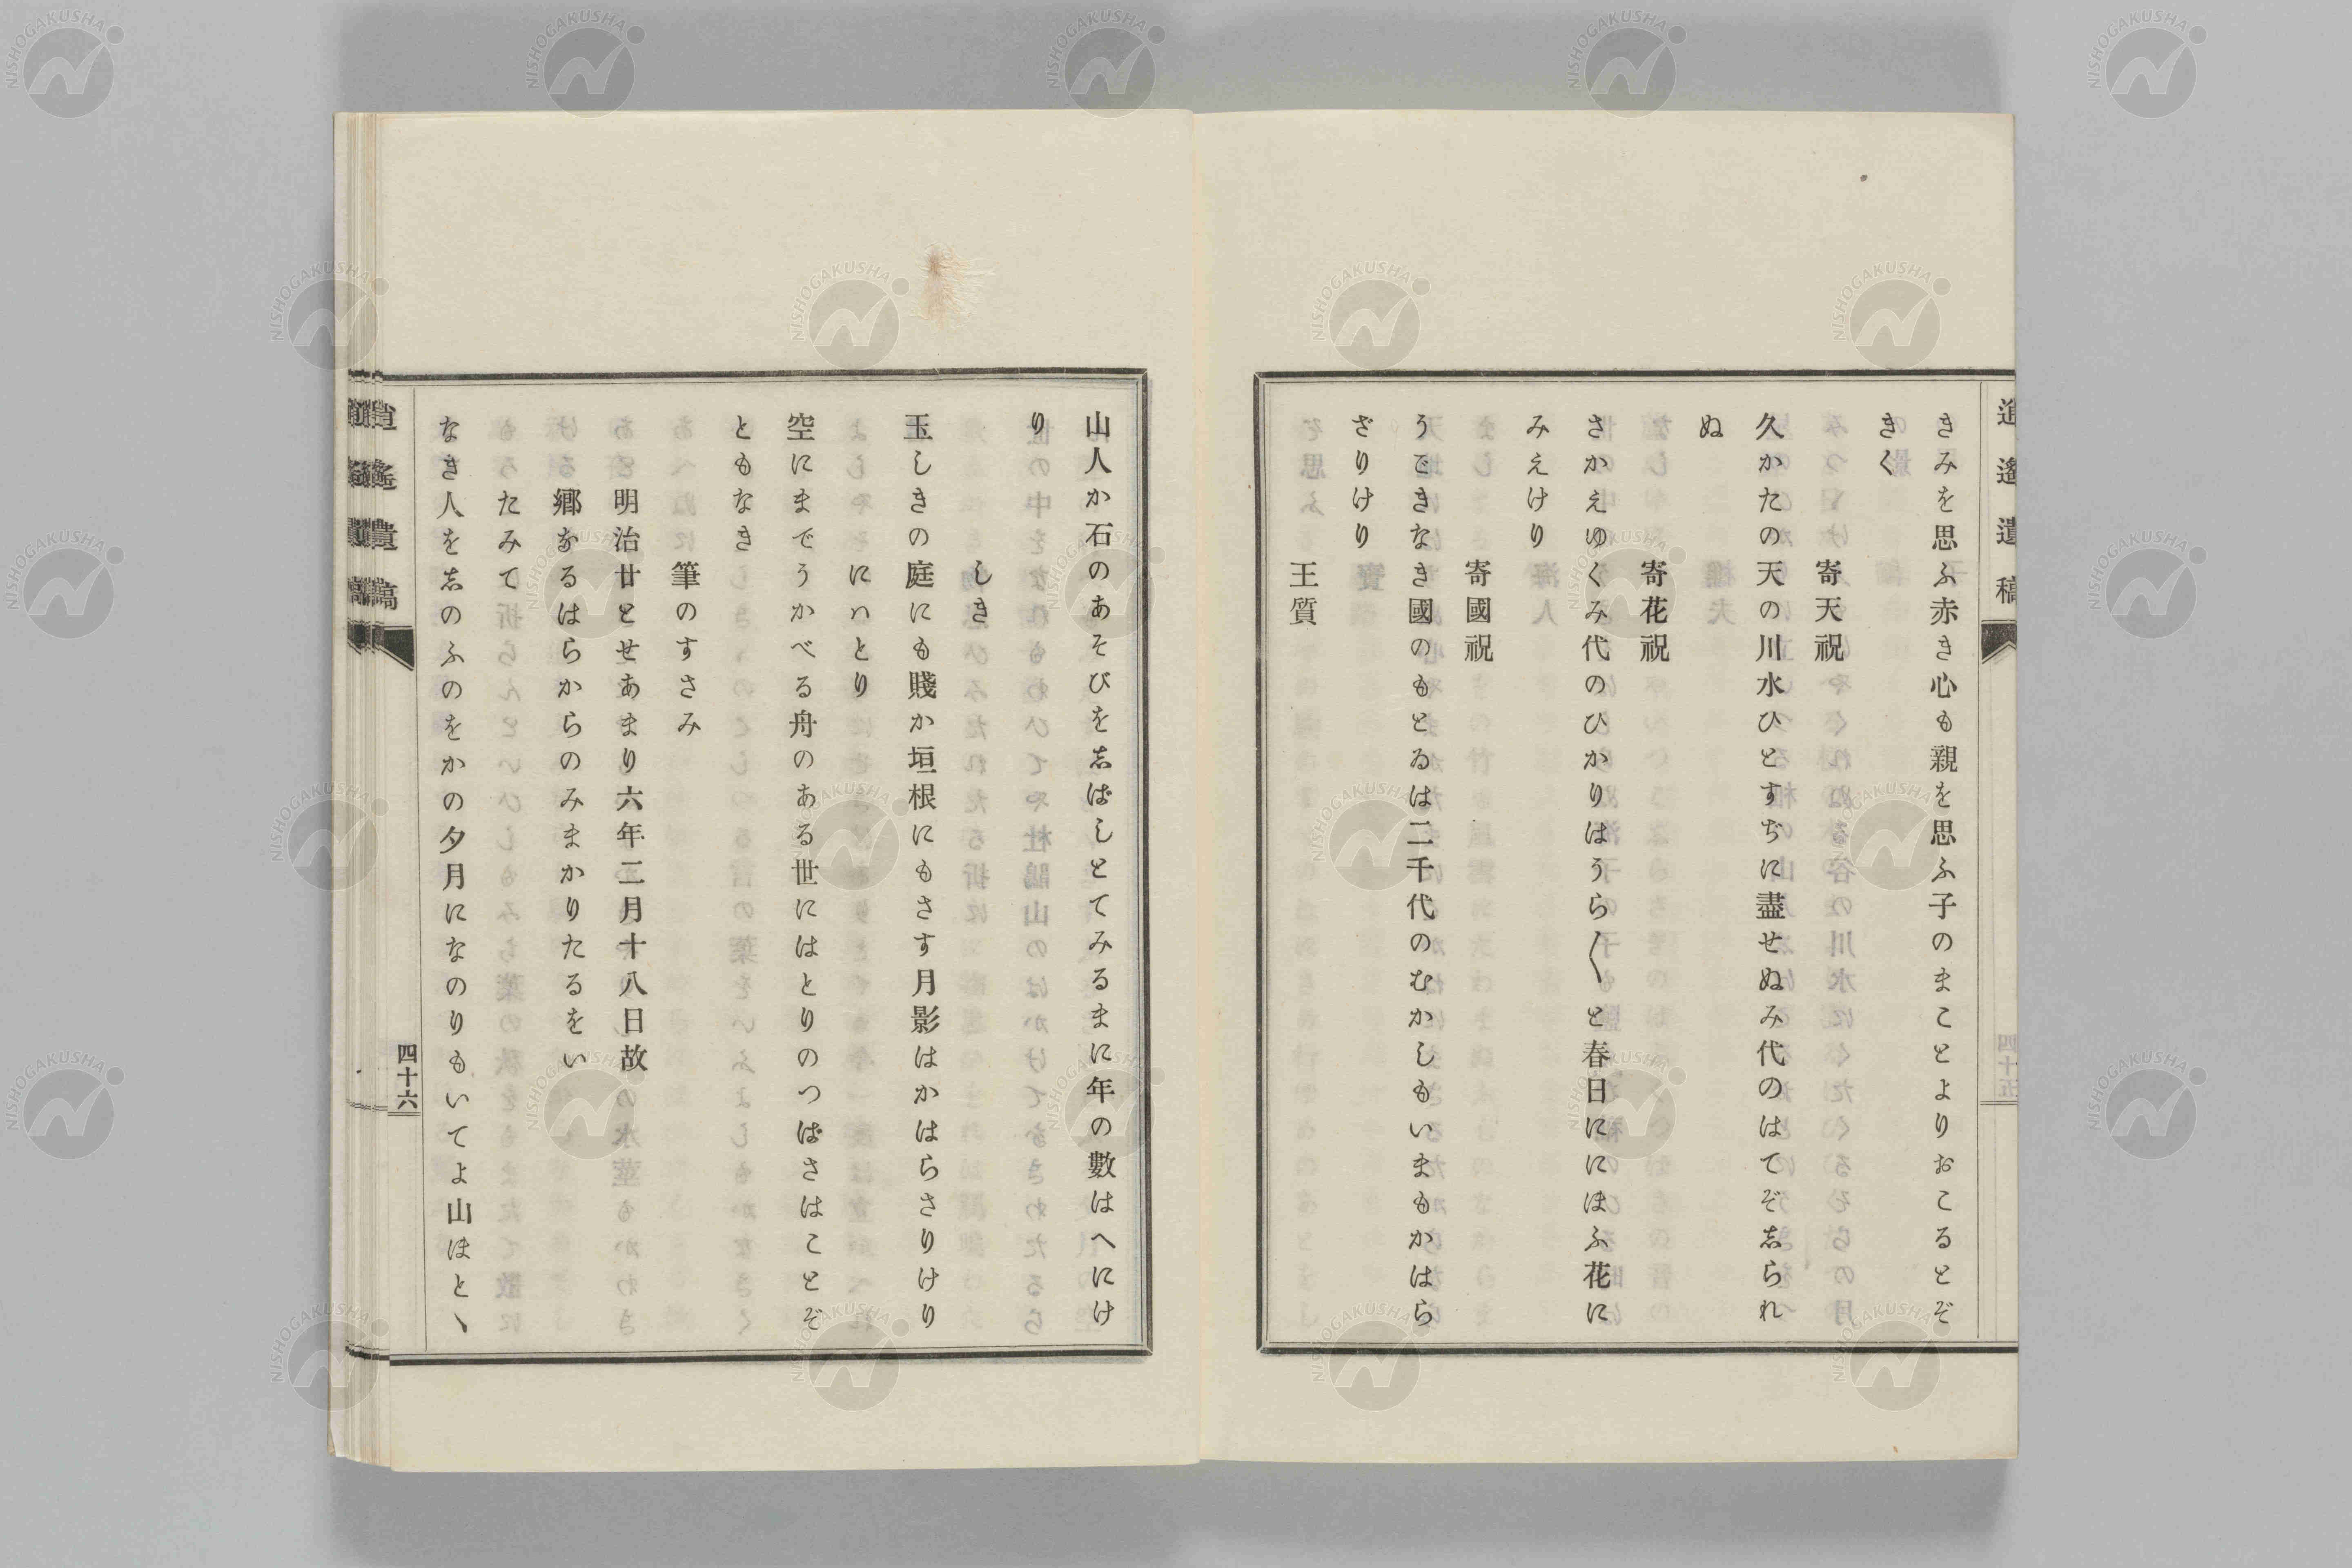 逍遙遺稿
きみを思ふ赤き心も親を思ふ子のまことよりおこるとぞ
きく
寄天祝
久かたの天の川水ひとすぢに盡せぬみ代のはてぞ志られ
ぬ
寄花祝
さかえゆくみ代のひかりはうら〱と春日ににほふ花に
みえけり
寄國祝
うごきなき國のもとゐは二千代のむかしもいまもかはら
ざりけり
王質
山人か石のあそびを志ばしとてみるまに年の數はへにけ
り
しき
玉しきの庭にも賤か垣根にもさす月影はかはらさりけり
にハとり
空にまでうかべる舟のある世にはとりのつばさはことぞ
ともなき
筆のすさみ
明治廿とせあまり六年二月十八日故
郷なるはらからのみまかりたるをい
たみて
なき人を志のふのをかの夕月になのりもいてよ山ほとゝ
逍遙遺稿
四十六
NISHOGAKUSHA